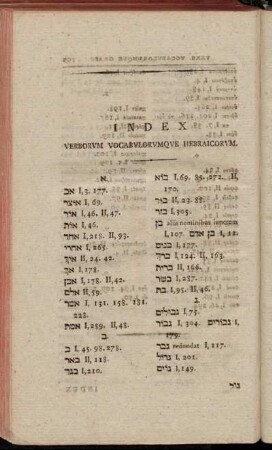 INDEX
VERBORVM VOCABVLORVMQVE HEBRAICORVM.
א
אב I, 3. 177.
איצר I, 69.
אור I, 46. II, 47.
אות I, 46.
אחד I, 218. II, 93.
אחרי I, 285.
איך II, 24. 42.
איך I, 178.
אבן I, 178. II, 42.
אלם II, 59.
אסר I, 131. 158. 181.
228.
אמת I, 259. II, 48.
ב
ב I, 45. 98. 278.
באר II, 118.
בגד I, 210.
בוא I, 69. 85. 272. II,
170.
בור II, 23. 88.
בזר I, 105.
בן aliis nominibus iunctum
I, 107. בן אדם II, 12.
בנוס I, 177.
ברך I, 124. II, 163.
ברית II, 166.
בשר I, 287.
בת I, 95. II, 46.
ג
גבולים I, 75.
גבור I, 304. גבורים I,
179.
גבר redundat I, 117.
גדול I, 201.
גוים I, 149.
גור